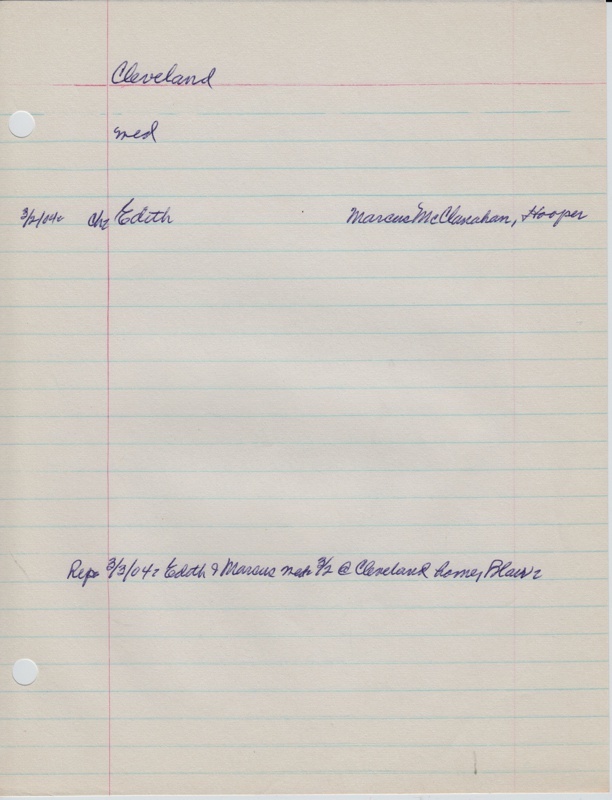 Cleveland
med
3/2/04: Ch: Edith Marcus McClanahan, Hooper
Rep: 3/3/04: Edith & Marcus med 3/2 @ Cleveland home, Blair: